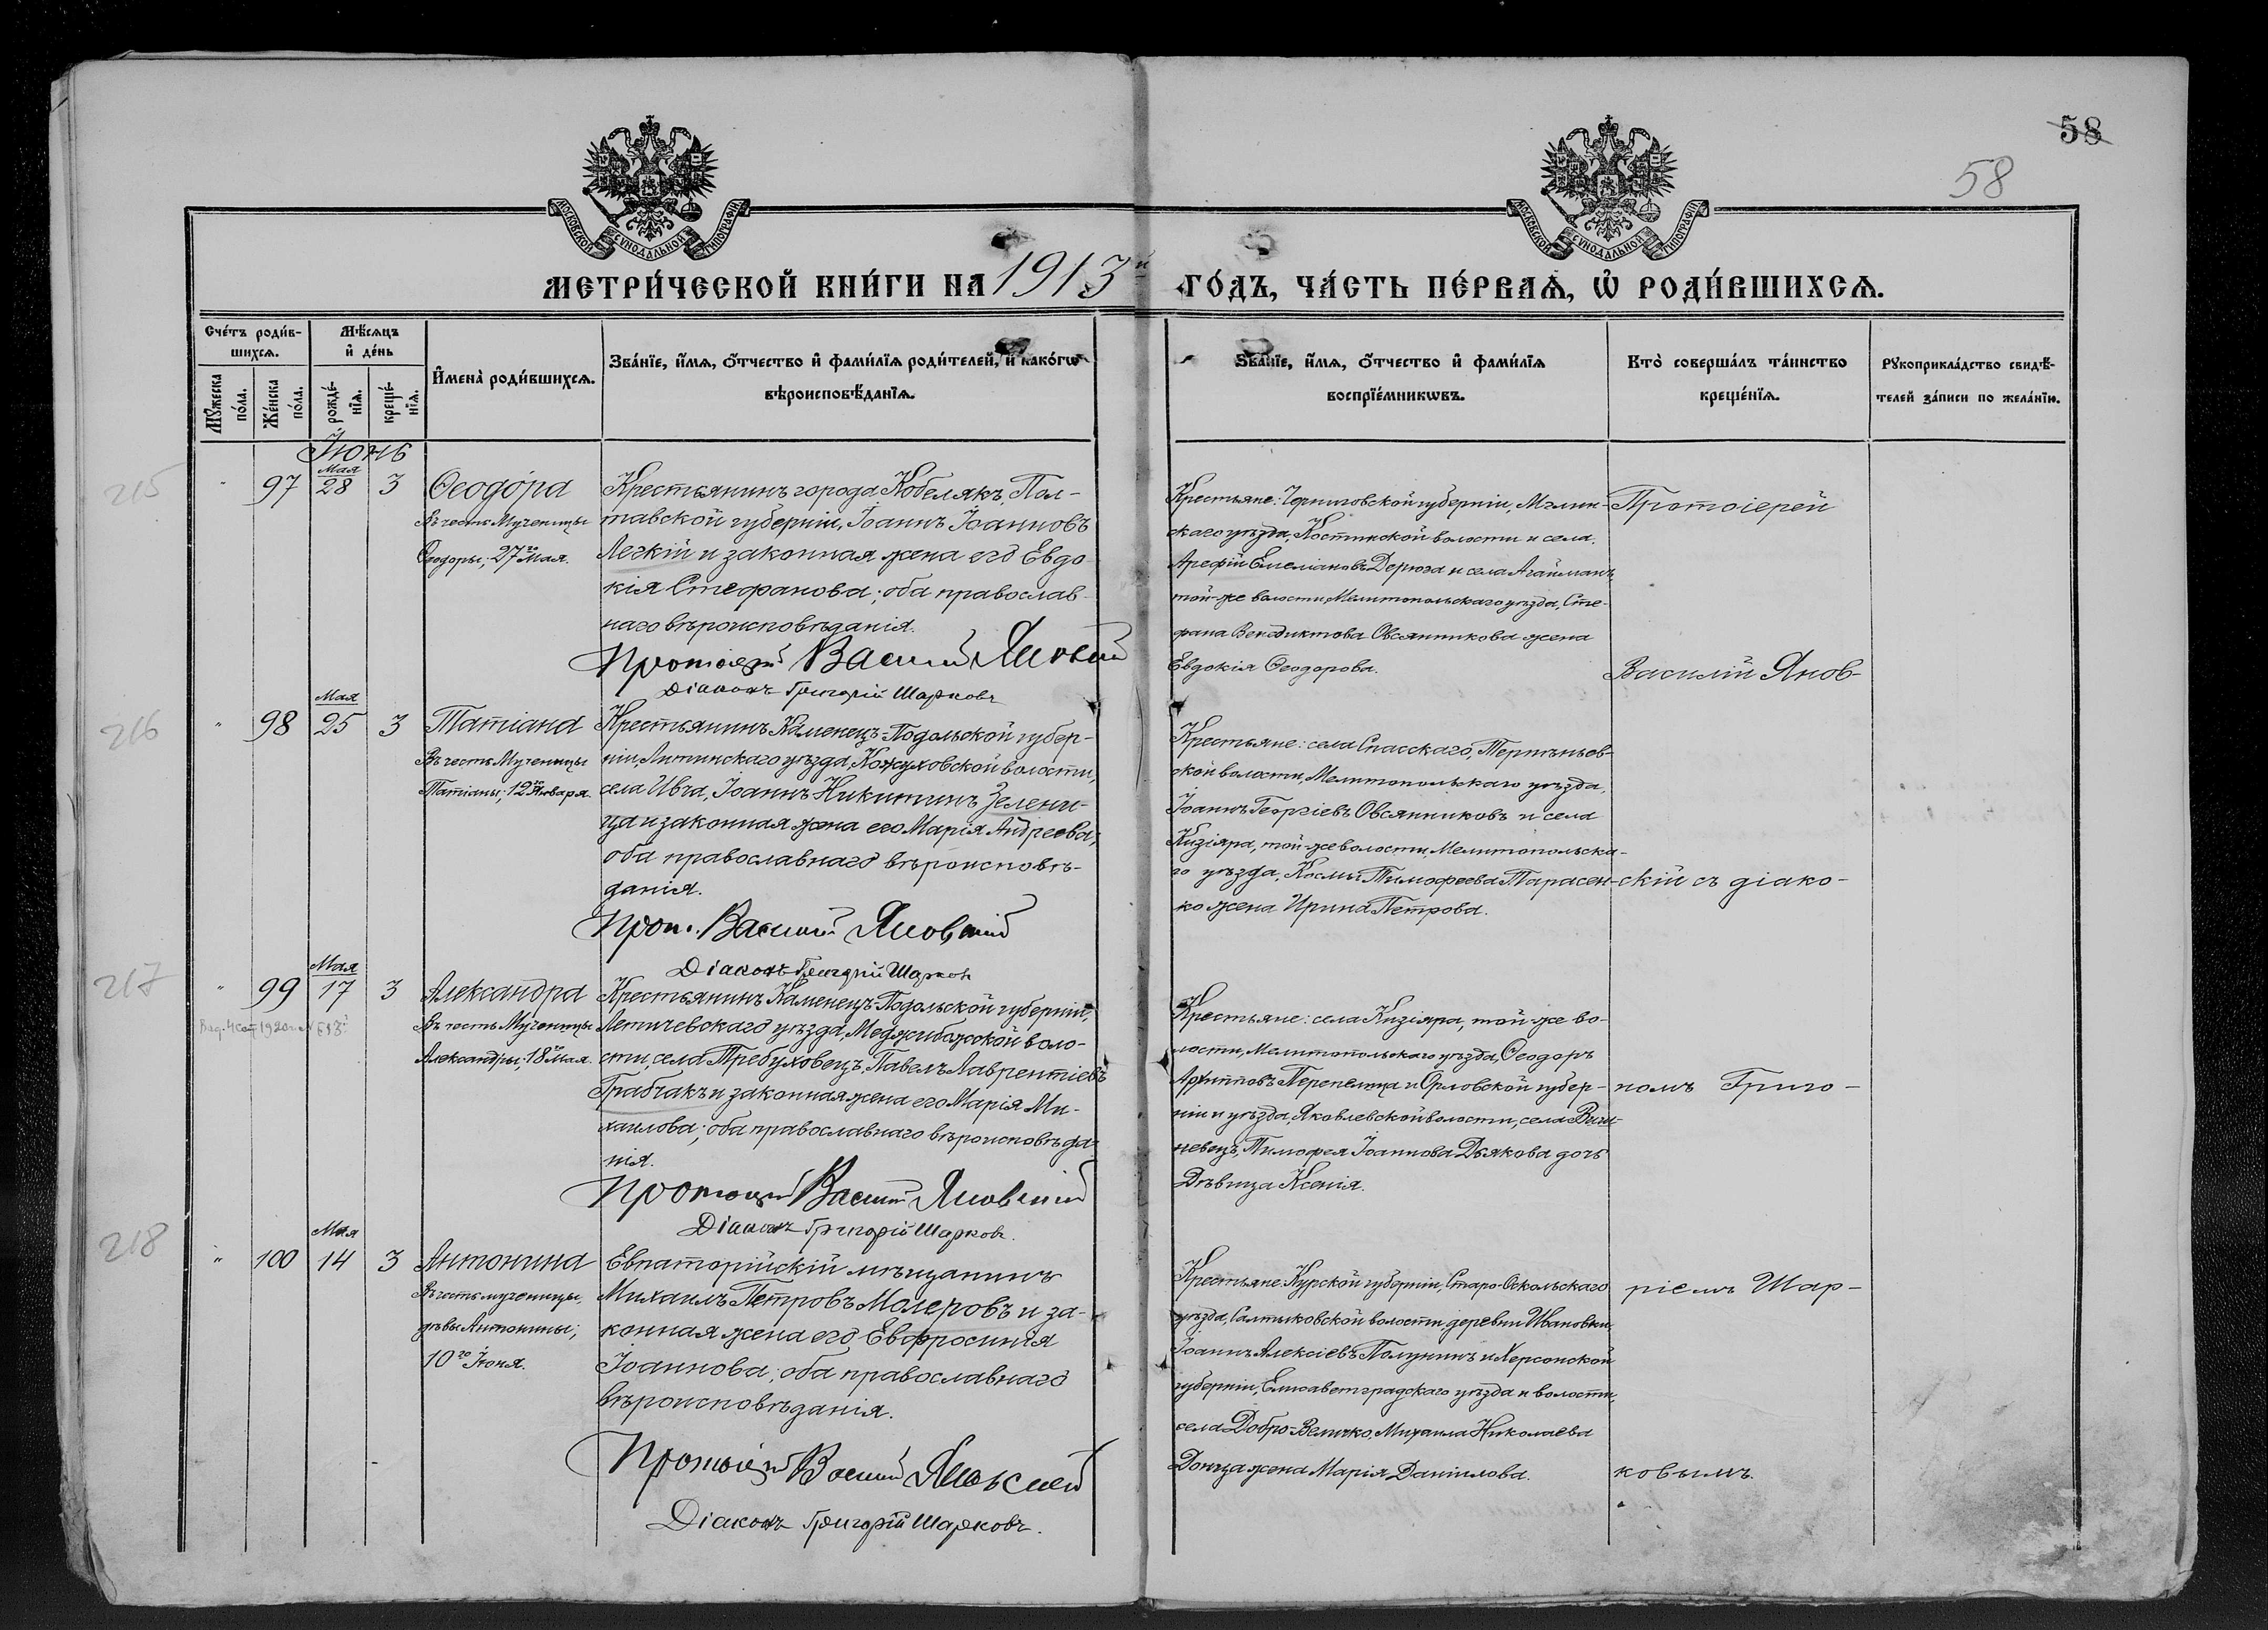 58
58
МОСКОВСКОЙ СѴНОДАЛЬНОЙ ТИПОГРАФІИ
МОСКОВСКОЙ СѴНОДАЛЬНОЙ ТИПОГРАФІИ
МЕТРИ́ЧЕСКОЙ КНИ́ГИ НА 1913й ГО́ДЪ, ЧА́СТЬ ПЕ́РВАѦ, Ѡ҆ РОДИ́ВШИХСѦ.
Сче́тъ роди́в-
шихсѧ.
Мꙋ́жеска по́ла.
Же́нска по́ла.
Мѣ́сѧцъ
и҆ де́нь
рожде́-
нїѧ.
креще́-
нїѧ.
И҆мена̀ роди́вшихсѧ.
Зва́нїе, и҆́мѧ, ѻ҆́тчество и҆ фами́лїѧ роди́телей, и҆ како́гѡ
вѣроисповѣ́данїѧ.
Зва́нїе, и҆́мѧ, ѻ҆́тчество и҆ фами́лїѧ
воспрїе́мникѡвъ.
Кто̀ соверша́лъ та́инство
креще́нїѧ.
Рꙋкоприкла́дство свидѣ́-
телей за́писи по жела́нїю.
Іюнь
215
" 97 Мая 28 3
Ѳеодо́ра
Въ честь Мученицы
Ѳеодоры; 27го Мая.
Крестьянинъ города Кобелякъ, Пол-
тавской губерніи, Іоаннъ Іоанновъ
Легкій и законная жена его Евдо
кія Стефанова; оба православ-
наго вѣроисповѣданія.
Протоіерей Василій Яновскій
Діаконъ Григорій Шарковъ
Крестьяне: Черниговской губерніи, Мглин-
скаго уѣзда, Костинской волости и села,
Арефій Емеліановъ Дерюга и села Агайманъ,
той-же волости, Мелитопольскаго уѣзда, Сте-
фана Венедиктова Овсянникова жена
Евдокія Ѳеодорова.
Протоіерей
Василій Янов-
216
" 98 Мая 25 3
Татіана
Въ честь Мученицы
Татіаны; 12го Января.
Крестьянинъ Каменецъ-Подольской губер-
ніи, Литинскаго уѣзда, Кожуховской волости,
села Ивча, Іоаннъ Никитинъ Зелени-
ца и законная жена его Марія Андреева;
оба православнаго вѣроисповѣ-
данія.
Прот. Василій Яновскій
Діаконъ Григорій Шарков
Крестьяне: села Спасскаго, Терпѣньев-
ской волости, Мелитопольскаго уѣзда,
Іоаннъ Георгіевъ Овсянниковъ и села
Кизіяра, той же волости, Мелитопольска-
го уѣзда, Космы Тимофеева Тарасен-
ко жена Ирина Петрова.
скій съ діако-
217
" 99 Мая 17 3
Александра
Въ честь Мученицы
Александры; 18го Мая.
Крестьянинъ Каменецъ-Подольской губерніи,
Летичевскаго уѣзда, Меджибожской воло-
сти, села Требуховецъ, Павелъ Лаврентіевъ
Грабчакъ и законная жена его Марія Ми-
хаилова; оба православнаго вѣроисповѣда-
нія.
Протоіерей Василій Яновскій
Діаконъ Григорій Шарковъ.
Крестьяне: села Кизіяра, той же во-
лости, Мелитопольскаго уѣзда, Ѳеодоръ
Архипповъ Перепелица и Орловской губер-
ніи и уѣзда, Яковлевской волости, села
Тимофея Іоаннова Дьякова дочь
Дѣвица Ксенія.
номъ Григо-
218
" 100 Мая 14 3
Антонина
Въ честь мученицы,
дѣвы Антонины;
10го Іюня.
Евпаторійскій мѣщанинъ
Михаилъ Петровъ Молеровъ и за-
конная жена его Евфросинія
Іоаннова; оба православнаго
вѣроисповѣданія.
Протоіерей Василій Яновскій
Діаконъ Григорій Шарковъ.
Крестьяне Курской губерніи, Старо-Оскольскаго
уѣзда, Салтыковской волости, деревни Ивановки,
Іоаннъ Алексіевъ Полунинъ и Херсонской
губерніи, Елисаветградскаго уѣзда и волости,
села Добро-Величко, Михаила Николаева
Донца жена Марія Даніилова.
ріемъ Шар-
ковымъ.